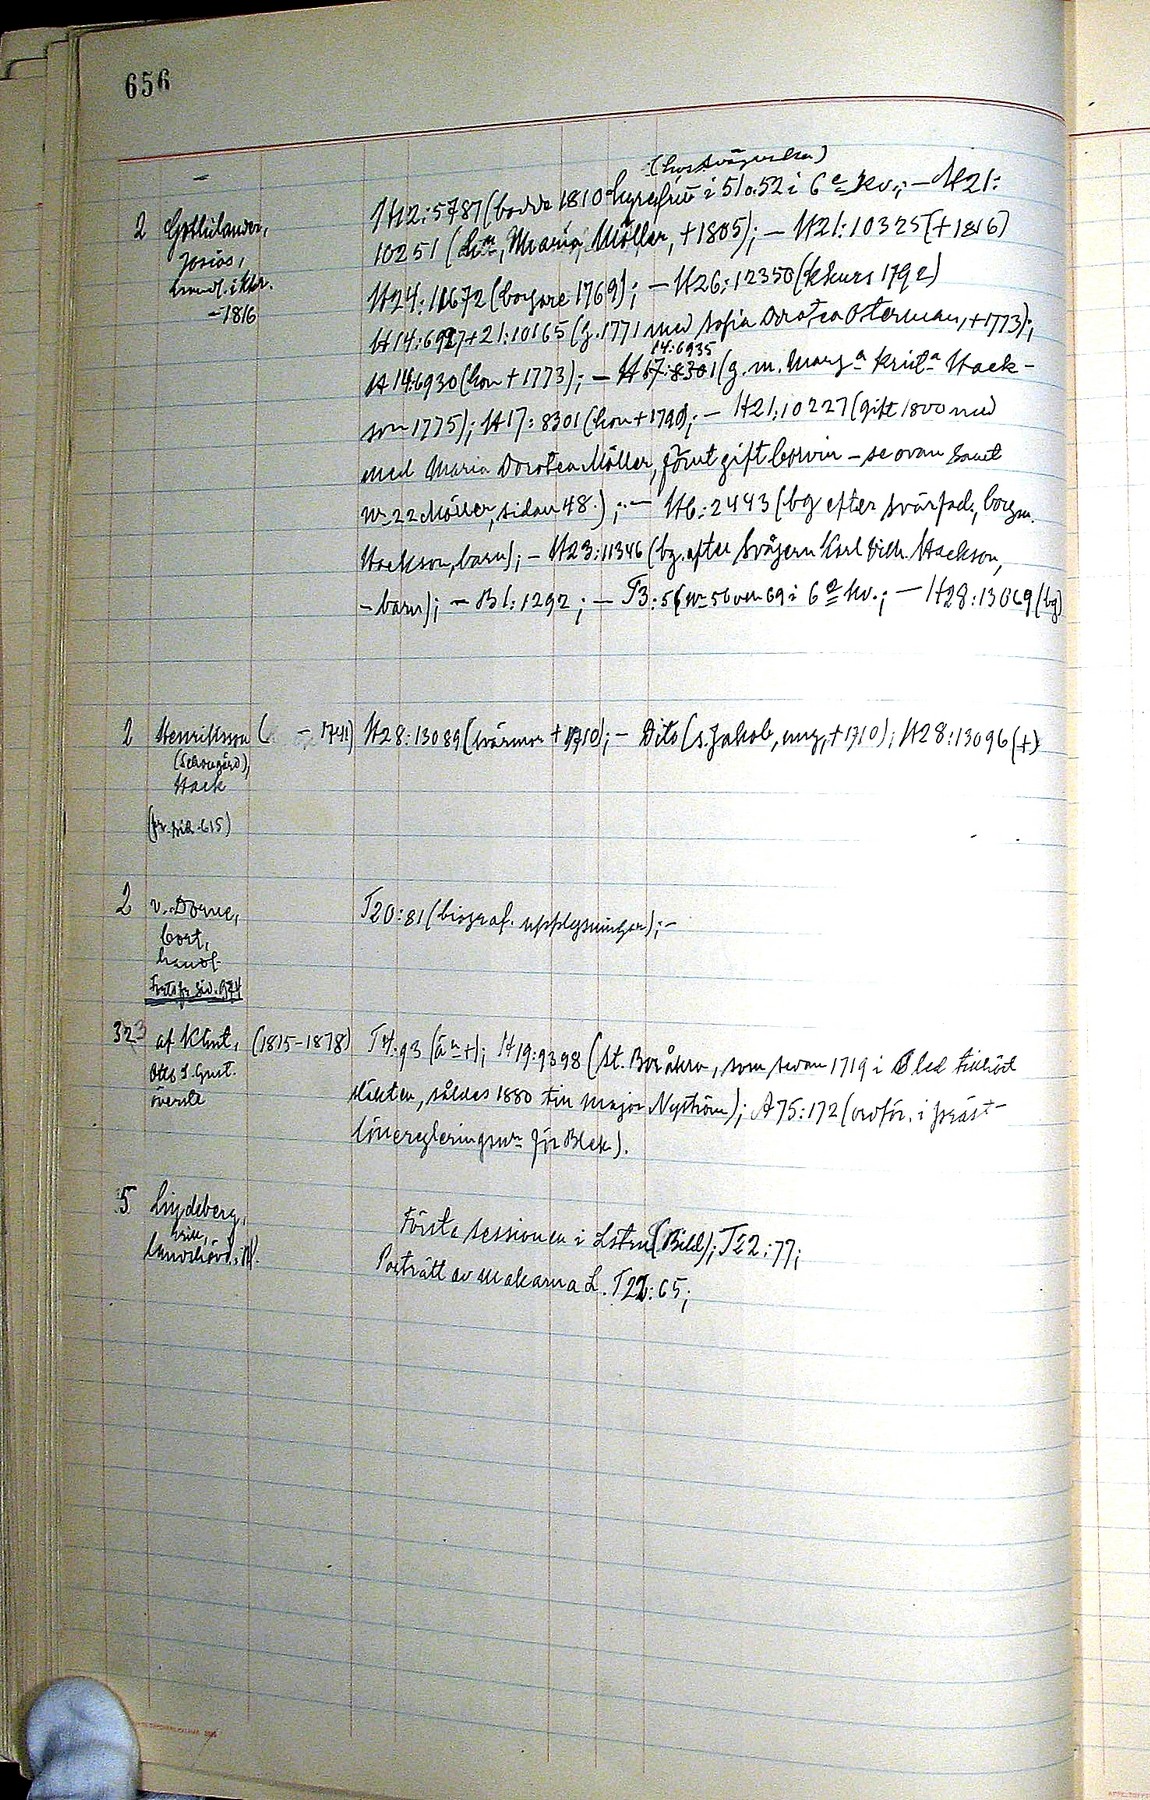 656
(hos svägerskan)
2 H12:5787 (bodde 1810 hyresfritt i 51 o. 52 i 6e kv.; — H21:
Gotthilander, 10251 (Maria Möller, +1805); — H21:10325 (+1816)
Josias,
handl. i Khr. H24:11672 (borgare 1769); — H26:12350 (kkurs 1792)
-1816 H14:6927+21:10165 (g. 1771 med Sofia Dorotea Osterman, +1773);
14:6935
H14:6930 (hon +1773); — H17:8301 (g. m. Marga Krista Hack-
son 1775); H17:8301 (hon +1790); — H21:10227 (gift 1800 med
med Maria Dorotea Möller, förut gift Corvin – se ovan samt
nr 22 Möller, sidan 48.); — H6:2443 (bg efter svärfad., borgm.
Hackson, barn); — H23:11346 (bg. efter svågern Karl Vilh. Hackson,
- barn); — B1:1292; — T3:56 nr 56 och 69 i 6e kv.; — H28:13069 (bg)
2 Henriksson ( - 1741) H28:13089 (svärmor +1710); — Dito (s. Jakob, ung, +1710); H28:13096 (+)
Hack
(fr. sid. 615)
2 v. Dorne, T20:81 (biograf. upplysningar); —
Cort,
handl.
Forts. fr. sid. 974
323 af Klint, (1815-1878) T4:93 (än +); H19:9398 (St. Boråkra, som sedan 1719 i Bled tillhört
Otto S. Gust.
överste släkten, såldes 1880 till major Nyström); A75:172 (ordför. i präst-
löneregleringsnn för Blek.).
5 Lindeberg, Första sessionen i Lstn (Bild); T22:77;
landshövd.
Porträtt av makarna L. T22:65;